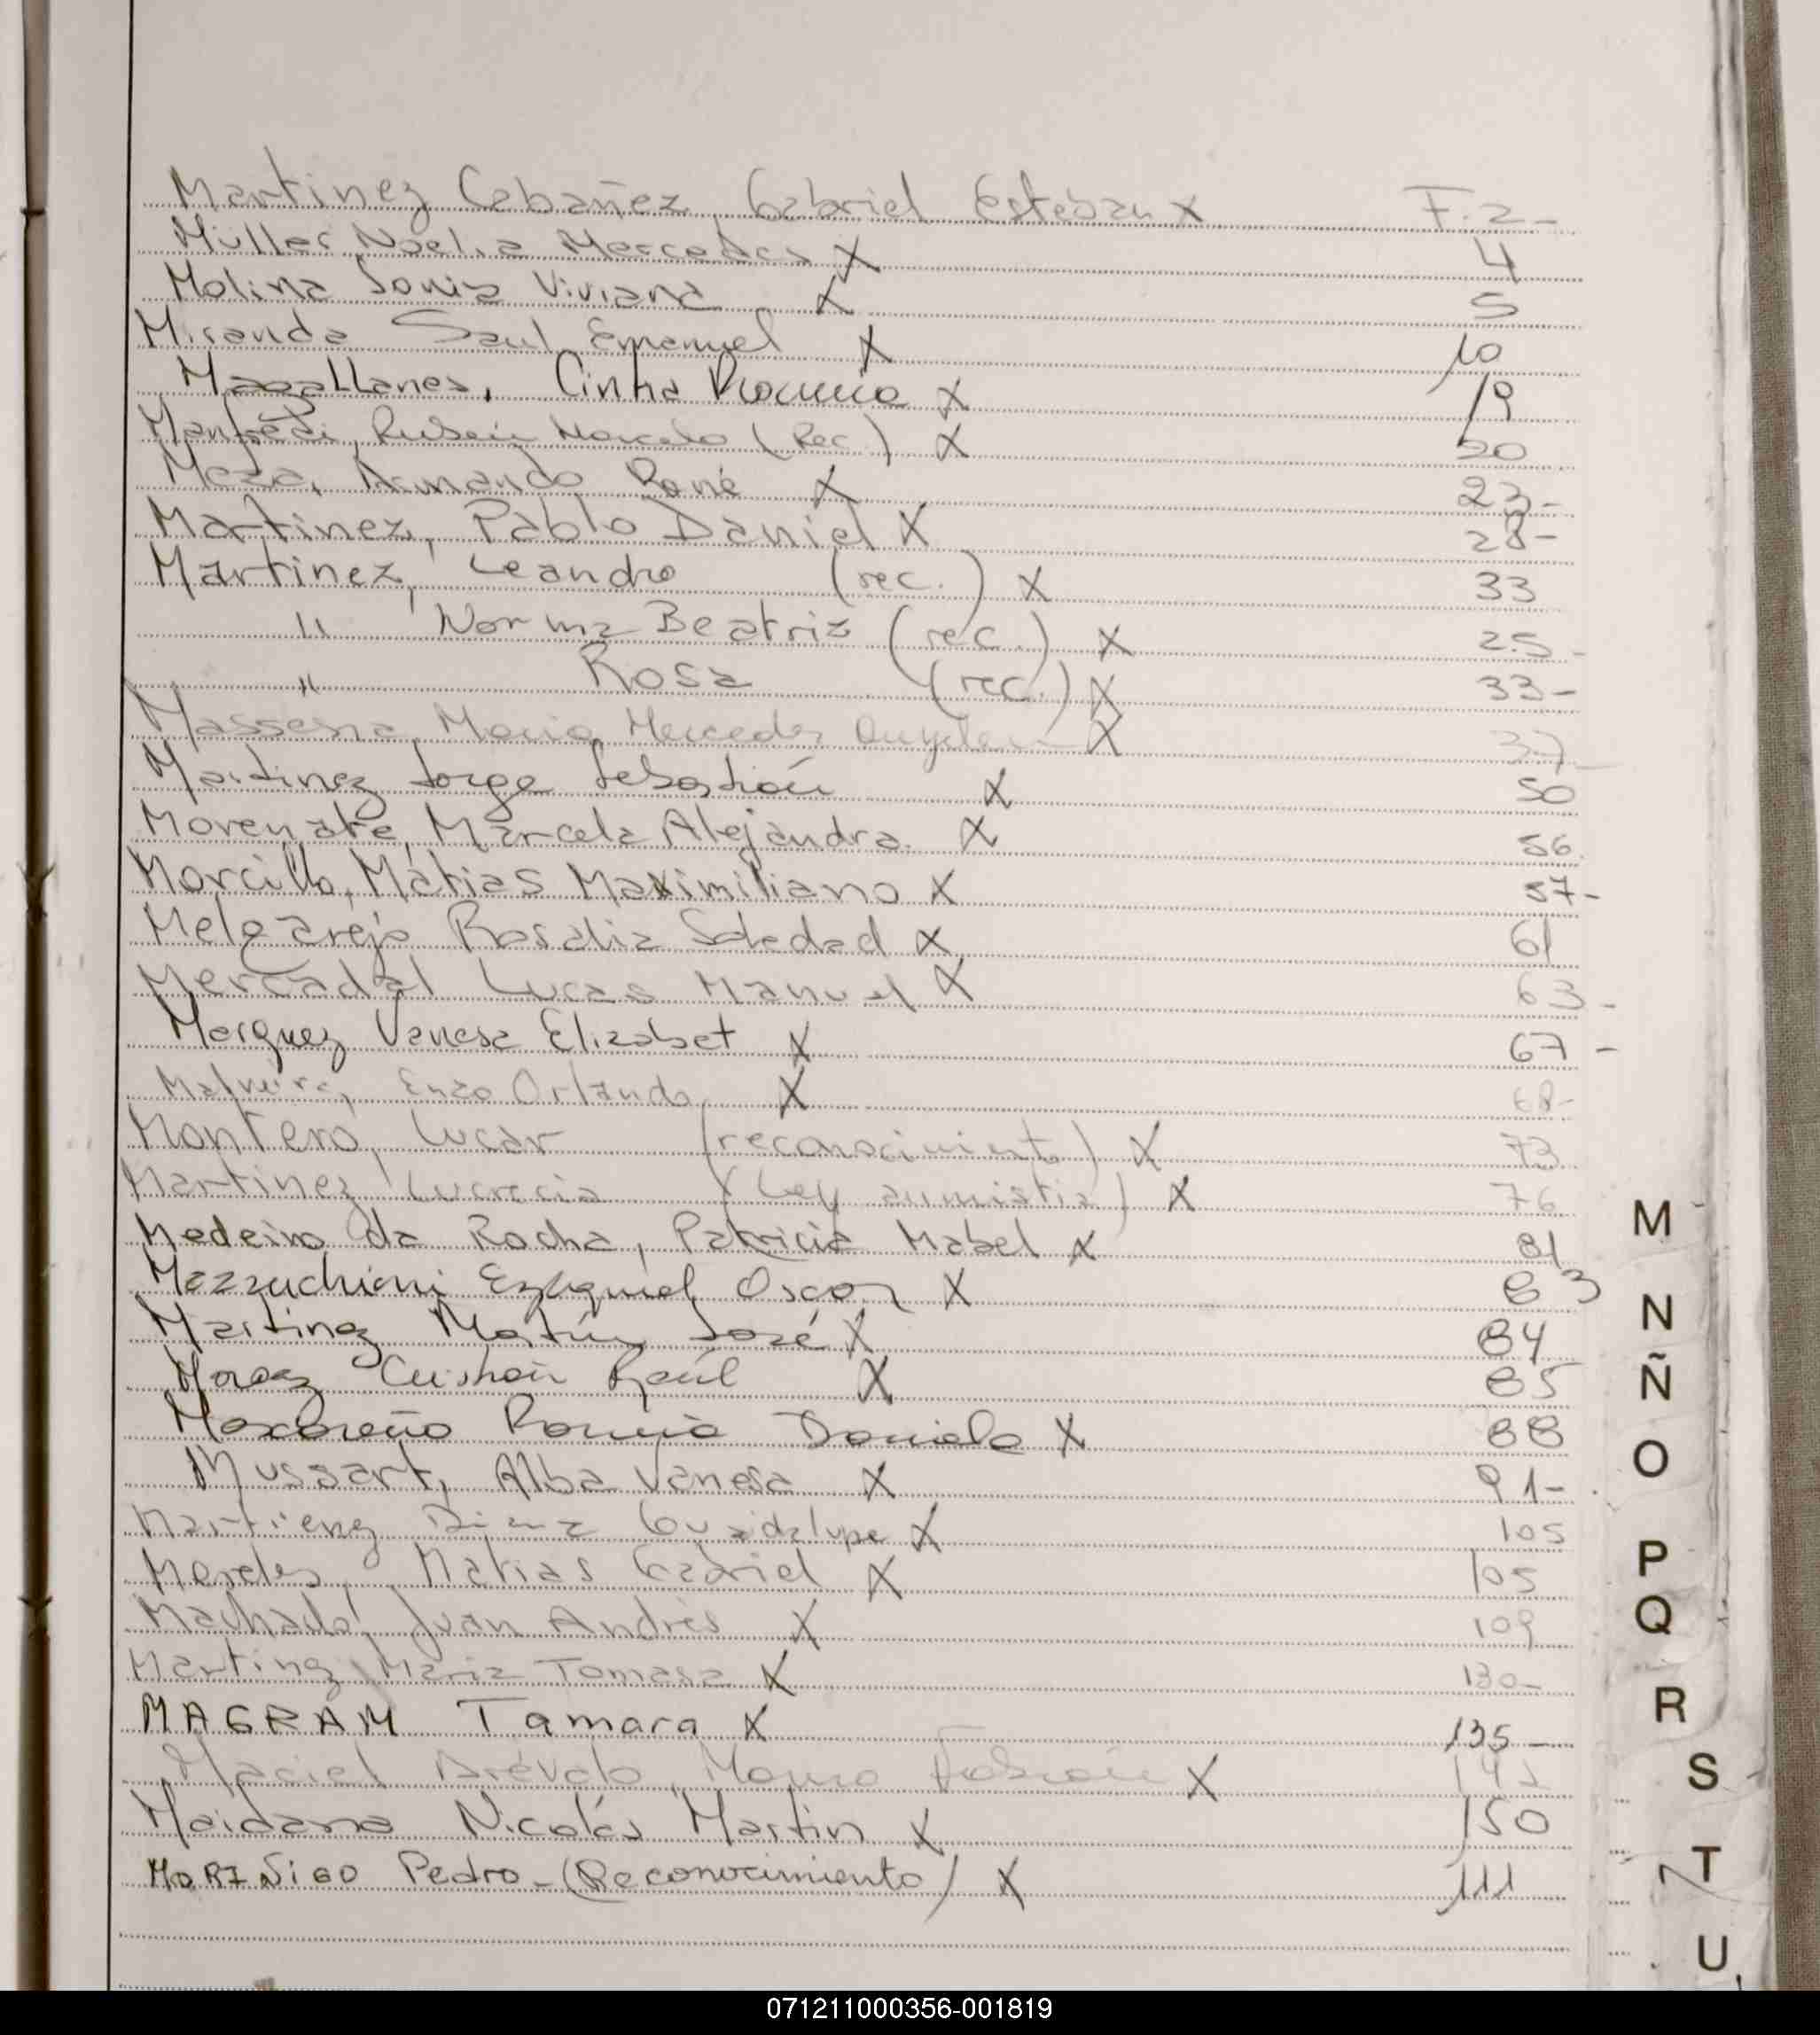 Martinez Cabañez, Gabriel Esteban X F. 2-
Müller Noelia Mercedes X 4
Molina Sonia Viviana X 5
Miranda Saul Emanuel X 10
Magallanes, Cintia Romina X 19
Manfredi, Ruben Marcelo (Rec.) X 20
Meza, Armando René X 23-
Martinez, Pablo Daniel X 28-
Martinez, Leandro (rec.) X 33
" Norma Beatriz (rec.) X 25-
" Rosa (rec.) X 33-
Massena, Maria Mercedes X 37-
Martinez Jorge Sebastián X 50
Marcela Alejandra. X 56.
Morcillo, Matias Maximiliano X 57-
Melgarejo Rosalia Soledad X 61
Mercadal Lucas Manuel X 63-
Marquez Vanesa Elizabet X 67-
Enzo Orlando X 68-
Montero, Lucas (reconocimiento) X 73
Martinez Lucrecia (Ley aumistia) X 76
Medeiro da Rocha, Patricia Mabel X 81
Mazzuchini Ezequiel Oscar X 83
Martinez Matías José X 84
Cristian Raúl X 85
Romina Daniela X 88
Mussart, Alba Vanesa X 91-
Guadalupe X 105
Mereles, Matias Gabriel X 105
Machado, Juan Andrés X 109
Martinez Maria Tomasa X 130-
MAGRAM Tamara X 135-
Maciel Arévalo, Mauro Fabián X
Maidana Nicolás Martin X 150
MORIÑIGO Pedro-(Reconocimiento) X 111
M
N
Ñ
O
P
Q
R
S
T
U
071211000356-001819